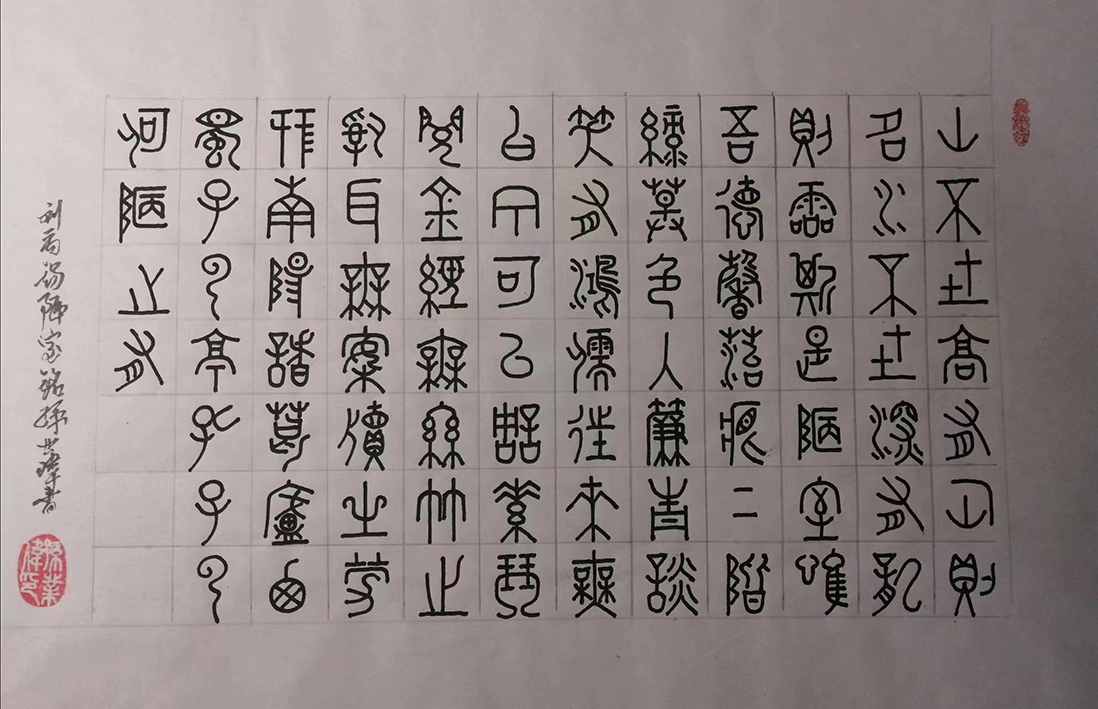 山不在高有仙則
名水不在深有龍
則靈斯是陋室唯
吾德馨苔痕上階
綠草色入簾青談
笑有鴻儒往來無
白丁可以調素琴
閱金經無絲竹之
亂耳無案牘之勞
形南陽諸葛廬西
蜀子雲亭孔子云
何陋之有
刘禹锡陋室铭孫書